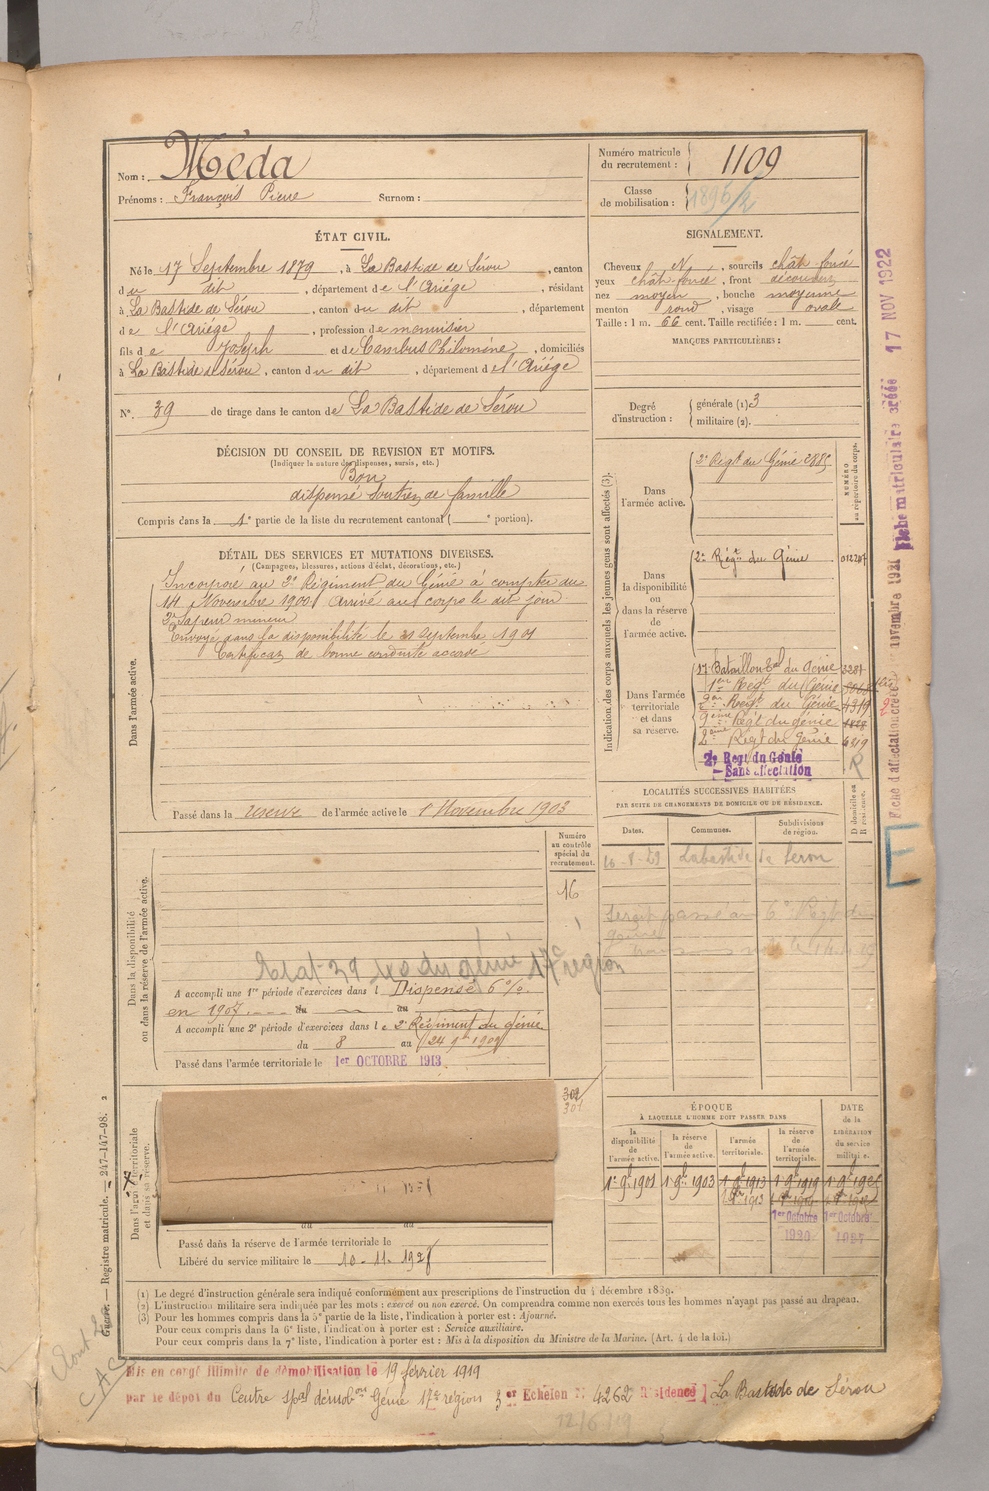 Nom : Méda
Prénoms : François Pierre Surnom :
Numéro matricule du recrutement : 1109
Classe de mobilisation : 1896/2
ÉTAT CIVIL.
Né le 17 Septembre 1879, à La Bastide de Sérou, canton
du dit, département de l'Ariège, résidant
à La Bastide de Sérou, canton du dit, département
de l'Ariège, profession de menuisier
fils de Joseph et de Cambus Philomène, domiciliés
à La Bastide de Sérou, canton du dit, département de l'Ariége
N° 39 de tirage dans le canton de La Bastide de Sérou
SIGNALEMENT.
Cheveux N, sourcils chât. foncé
yeux chât. foncé, front découvert
nez moyen, bouche moyenne
menton rond, visage ovale
Taille : 1 m. 66 cent. Taille rectifiée : 1 m. cent.
MARQUES PARTICULIÈRES :
Degré d'instruction : générale (1) 3
militaire (2).
DÉCISION DU CONSEIL DE REVISION ET MOTIFS.
(Indiquer la nature des dispenses, sursis, etc.)
Bon
dispensé soutien de famille
Compris dans la 1e partie de la liste du recrutement cantonal ( e portion).
DÉTAIL DES SERVICES ET MUTATIONS DIVERSES.
(Campagnes, blessures, actions d'éclat, décorations, etc.)
Dans l'armée active.
Incorporé au 2e Régiment du Génie à compter du
14 Novembre 1900. Arrivé au corps le dit jour
2e Sapeur mineur
Envoyé dans la disponibilité le 21 Septembre 1901
Certificat de bonne conduite accordé
Passé dans la réserve de l'armée active le 1 Novembre 1903
Indication des corps auxquels les jeunes gens sont affectés (3).
NUMÉRO au répertoire du corps.
Dans l'armée active.
2e Régt du Génie 2885
Dans la disponibilité ou dans la réserve de l'armée active.
2e Régt du Génie
Dans l'armée territoriale et dans sa réserve.
17e Bataillon Tal du Génie 3287
1er Régt du Génie
2e Régt du Génie 4319
9ème Régt du génie
2ème Régt du Génie 4319
2e Regt du Génie
Sans affectation
R
LOCALITÉS SUCCESSIVES HABITÉES
PAR SUITE DE CHANGEMENTS DE DOMICILE OU DE RÉSIDENCE.
Dates. Communes. Subdivisions de région. D domicile ou R résidence.
Labastide de Serou
serait passé au 6e Regt du
génie
Dans la disponibilité ou dans la réserve de l'armée active.
Numéro au contrôle spécial du recrutement.
16
du génie 17e région
A accompli une 1re période d'exercices dans l Dispensé 6%.
en 1907 du au
A accompli une 2e période d'exercices dans le 2e Régiment du génie
du 8 au 24 9bre 1909
Passé dans l'armée territoriale le 1er OCTOBRE 1913
Dans l'armée territoriale et dans sa réserve.
302
301
du au
Passé dans la réserve de l'armée territoriale le
Libéré du service militaire le 10-11-1928
ÉPOQUE
À LAQUELLE L'HOMME DOIT PASSER DANS
DATE de la LIBÉRATION du service militaire.
la disponibilité de l'armée active. la réserve de l'armée active. l'armée territoriale. la réserve de l'armée territoriale.
1er 9bre 1901 1er 9bre 1903 1er 9bre 1913 1er 9bre 1919 1er 9bre 1925
1er Octobre 1920 1er Octobre 1927
(1) Le degré d'instruction générale sera indiqué conformément aux prescriptions de l'instruction du 4 décembre 1889.
(2) L'instruction militaire sera indiquée par les mots : exercé ou non exercé. On comprendra comme non exercés tous les hommes n'ayant pas passé au drapeau.
(3) Pour les hommes compris dans la 5e partie de la liste, l'indication à porter est : Ajourné.
Pour ceux compris dans la 6e liste, l'indication à porter est : Service auxiliaire.
Pour ceux compris dans la 7e liste, l'indication à porter est : Mis à la disposition du Ministre de la Marine. (Art. 4 de la loi.)
Mis en congé illimité de démobilisation le 19 février 1919
par le dépôt du Centre spal démobon Génie 17e région 3 er Echelon N° 4262 Résidence La Bastide de Sérou
12/6/19
Guerre. — Registre matricule. — 247-147-98. 2
C A C
Fiche d'affectation créée novembre 1921
Fiche matriculaire créée 17 NOV 1922
E